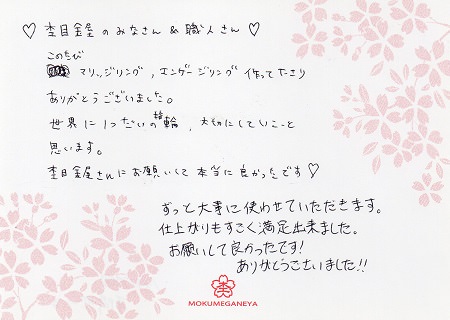 ♡ 杢目金屋のみなさん & 職人さん ♡
このたび
マリッジリング、エンゲージリング 作ってくださり
ありがとうございました。
世界に1つだけの指輪、大切にしていこうと
思います。
杢目金屋さんにお願いして本当に良かったです♡
ずっと大事に使わせていただきます。
仕上がりもすごく満足出来ました。
お願いして良かったです!
ありがとうございました!!
MOKUMEGANEYA